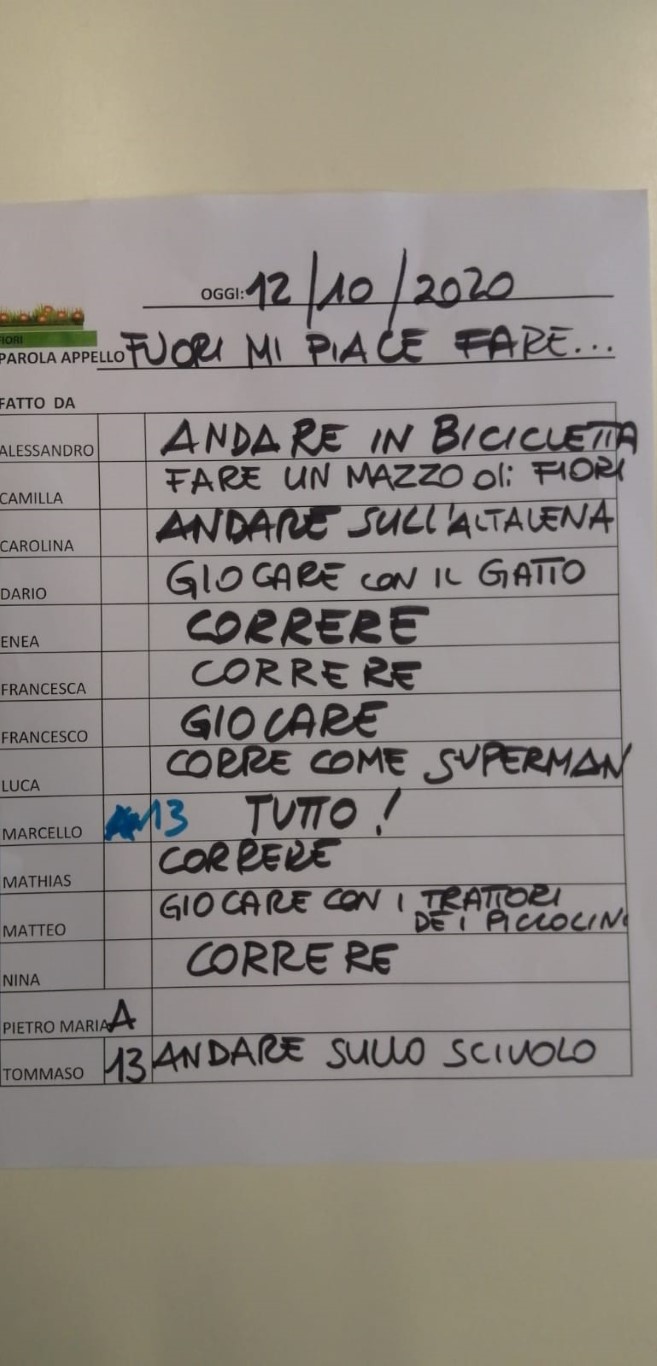 OGGI: 12/10/2020
FIORI
PAROLA APPELLO FUORI MI PIACE FARE...
FATTO DA
ALESSANDRO ANDARE IN BICICLETTA
CAMILLA FARE UN MAZZO di FIORI
CAROLINA ANDARE SULL'ALTALENA
DARIO GIOCARE CON IL GATTO
ENEA CORRERE
FRANCESCA CORRERE
FRANCESCO GIOCARE
LUCA CORRE COME SUPERMAN
MARCELLO 13 TUTTO!
MATHIAS CORRERE
MATTEO GIOCARE CON I TRATTORI
DEI PICCOLINI
NINA CORRERE
PIETRO MARIA A
TOMMASO 13 ANDARE SULLO SCIVOLO